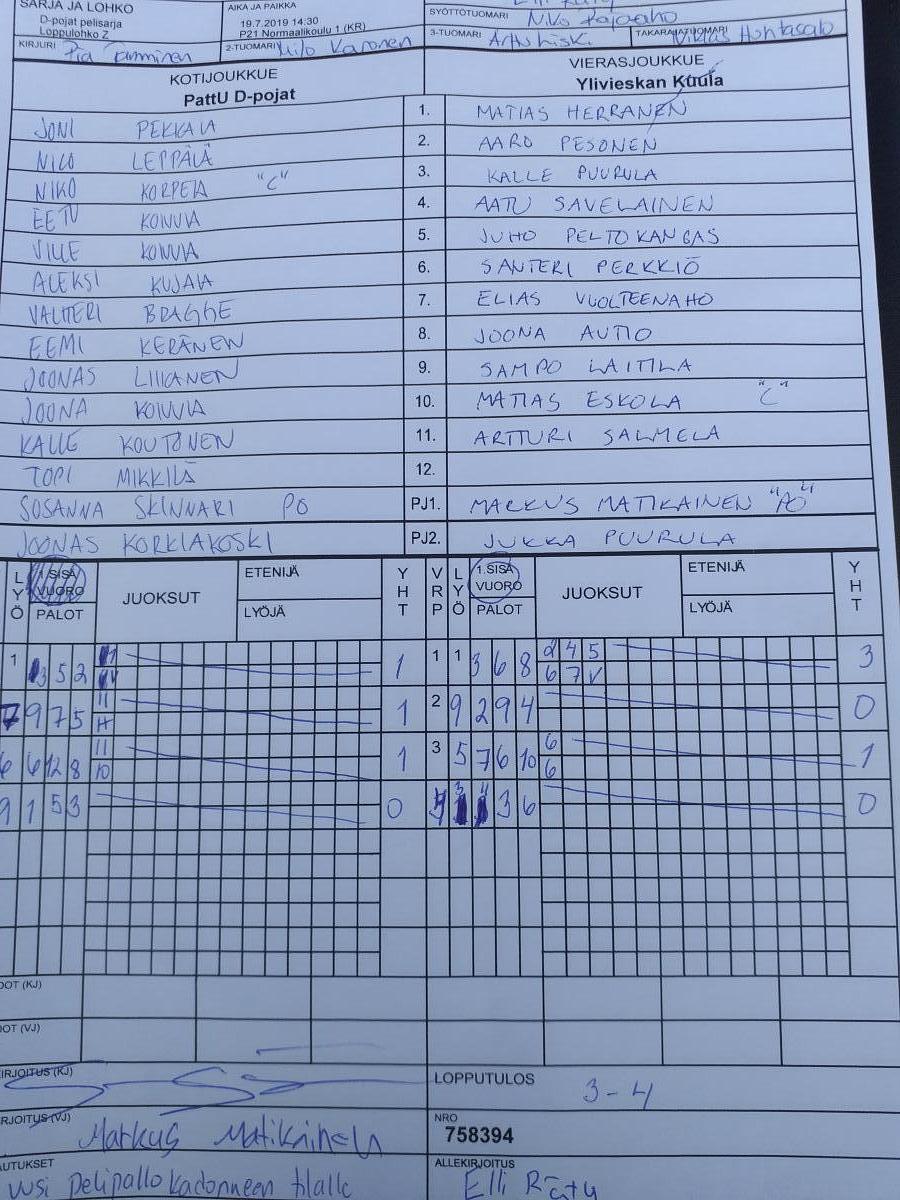 SARJA JA LOHKO
D-pojat pelisarja
Loppulohko Z
AIKA JA PAIKKA
19.7.2019 14:30
P21 Normaalikoulu 1 (KR)
SYÖTTÖTUOMARI Niko
KIRJURI Pia Tamminen
2-TUOMARI
3-TUOMARI
TAKARAJATUOMARI Niklas Huhtasalo
KOTIJOUKKUE
PattU D-pojat
VIERASJOUKKUE
Ylivieskan Kuula
JONI PEKKALA 1. MATIAS HERRANEN
NILO LEPPÄLÄ 2. AARO PESONEN
NIKO KORPELA "C" 3. KALLE PUURULA
EETU KOIVULA 4. AATU SAVELAINEN
VILLE KOIVULA 5. JUHO PELTOKANGAS
ALEKSI KUJALA 6. SANTERI PERKKIÖ
VALTTERI BRAGGE 7. ELIAS VUOLTEENAHO
EEMI KERÄNEN 8. JOONA AUTIO
JOONAS LIIKANEN 9. SAMPO LAITILA
JOONA KOIVULA 10. MATIAS ESKOLA "C"
KALLE KOUTONEN 11. ARTTURI SALMELA
TOPI MIKKILÄ 12.
SOSANNA SKINNARI PÖ PJ1. MARKUS MATIKAINEN
JOONAS KORKIAKOSKI PJ2. JUKKA PUURULA
LYÖ 1.SISÄ VUORO PALOT JUOKSUT ETENIJÄ LYÖJÄ YHT VRP LYÖ 1.SISÄ VUORO PALOT JUOKSUT ETENIJÄ LYÖJÄ YHT
1 3 5 2 1 1 1 3 6 8 2 4 5 3
6 7 V
7 9 7 5 11 1 2 9 2 9 4 0
6 6 12 8 11 1 3 5 7 6 10 6 1
10 6
9 1 5 3 0 3 6 0
OT (KJ)
OT (VJ)
IRJOITUS (KJ)
LOPPUTULOS 3-4
RJOITUS (VJ) Markus Matikainen
NRO
758394
AUTUKSET uusi pelipallo kadonneen tilalle
ALLEKIRJOITUS Elli Räty